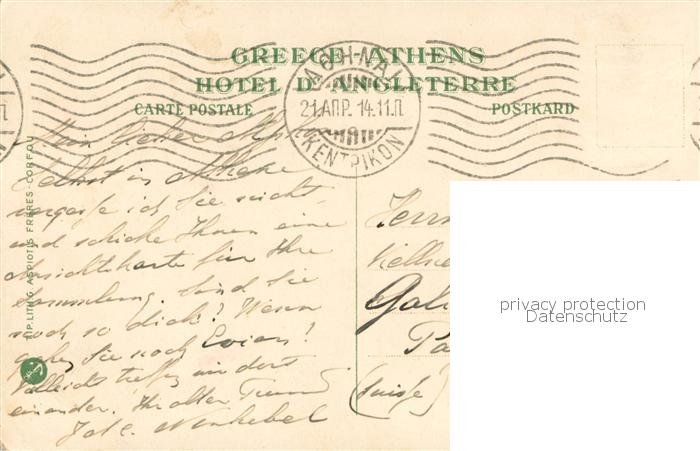 GREECE-ATHENS
HOTEL D'ANGLETERRE
CARTE POSTALE
POSTKARD
21 ΑΠΡ. 14.11.Π
ΚΕΝΤΡΙΚΟΝ
IMP. LITH G. ASPIOTIS FRÈRES-CORFOU
Mein lieber
Selbst in Athen
vergesse ich Sie nicht
und schicke Ihnen eine
Ansichtskarte für Ihre
Sammlung. Sind Sie
noch so dick? Wann
gehen Sie noch Evian?
Vielleicht treffen wir dort
einander. Ihr alter Freund
Herrn
(Suisse)
privacy protection
Datenschutz